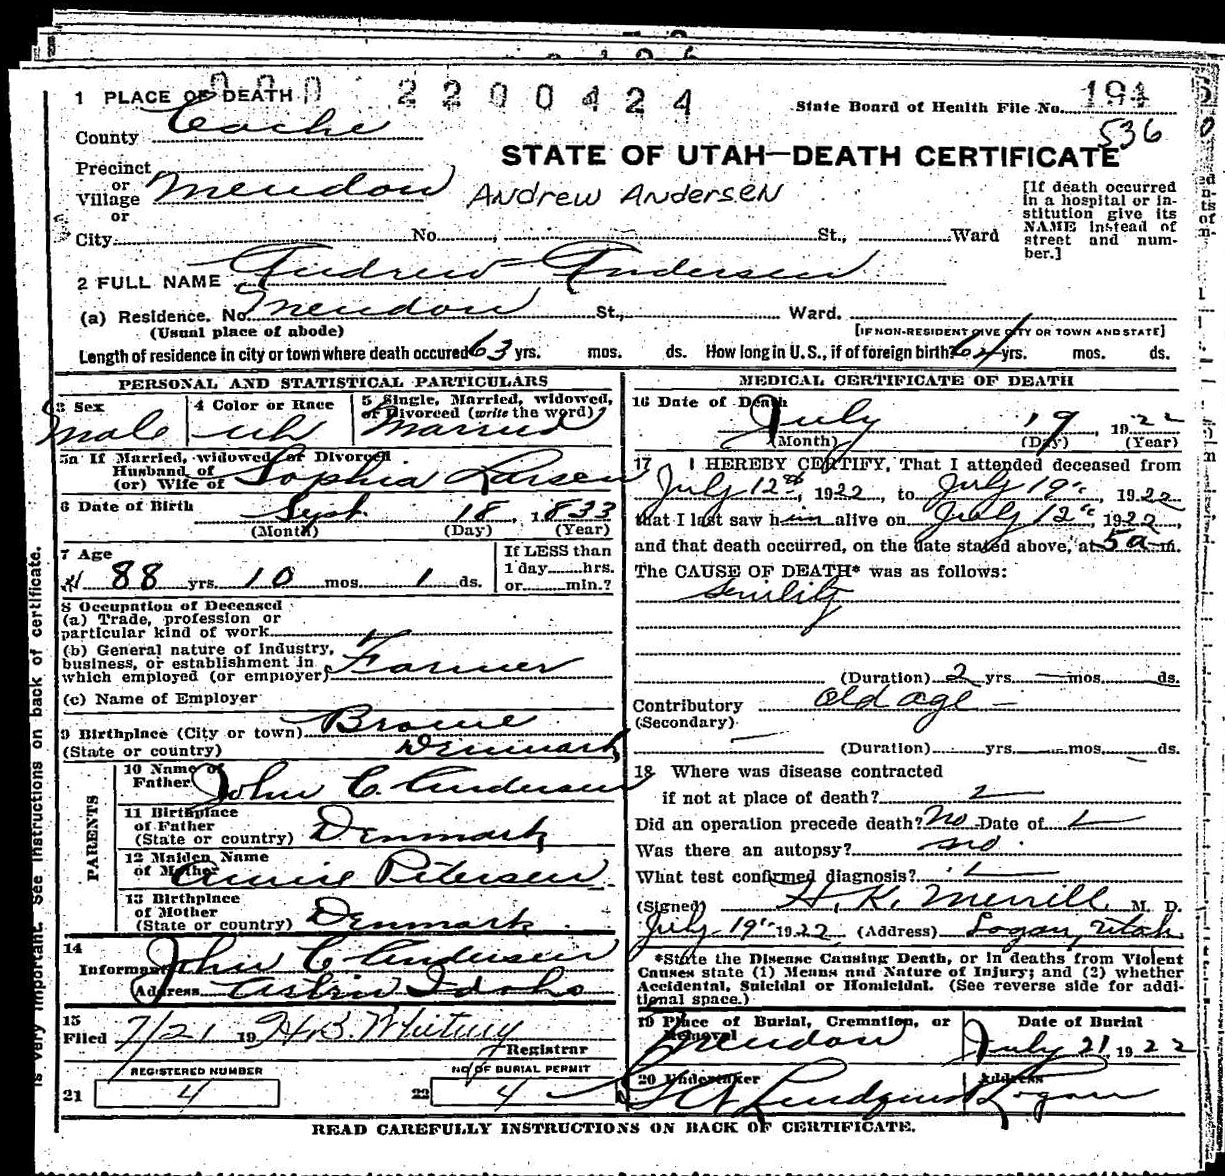 1 PLACE OF DEATH 000 2200424
State Board of Health File No. 194
County Cache 536
STATE OF UTAH—DEATH CERTIFICATE
Precinct
or
Village Mendon Andrew Andersen
or
City No. St., Ward
[If death occurred
in a hospital or in-
stitution give its
NAME instead of
street and num-
ber.]
2 FULL NAME Andrew Andersen
(a) Residence. No. Mendon St., Ward.
(Usual place of abode) [IF NON-RESIDENT GIVE CITY OR TOWN AND STATE]
Length of residence in city or town where death occured 63 yrs. mos. ds. How long in U. S., if of foreign birth? 64 yrs. mos. ds.
PERSONAL AND STATISTICAL PARTICULARS
3 Sex 4 Color or Race 5 Single, Married, widowed,
or Divorced (write the word)
Male wh Married
5a If Married, widowed or Divorced
Husband of
(or) Wife of Sophia Larsen
6 Date of Birth Sept 18, 1833
(Month) (Day) (Year)
7 Age If LESS than
1 day hrs.
88 yrs 10 mos. 1 ds. or min.?
8 Occupation of Deceased
(a) Trade, profession or
particular kind of work
(b) General nature of industry,
business, or establishment in
which employed (or employer) Farmer
(c) Name of Employer
9 Birthplace (City or town)
(State or country) Denmark
PARENTS
10 Name of
Father John C. Andersen
11 Birthplace
of Father
(State or country) Denmark
12 Maiden Name
of Mother Annie Petersen
13 Birthplace
of Mother
(State or country) Denmark
14
Informant John C Andersen
Address Idaho
15
Filed 7/21 19 H. B. Whitney
Registrar
REGISTERED NUMBER NO OF BURIAL PERMIT
21 4 22 4
MEDICAL CERTIFICATE OF DEATH
16 Date of Death July 19, 1922
(Month) (Day) (Year)
17 I HEREBY CERTIFY, That I attended deceased from
July 12th, 1922, to July 19th, 1922
that I last saw him alive on July 12th, 1922,
and that death occurred, on the date stated above, at 5 a m.
The CAUSE OF DEATH* was as follows:
Senility
(Duration) 2 yrs. — mos. ds.
Contributory old age —
(Secondary)
(Duration) yrs. mos. ds.
18 Where was disease contracted
if not at place of death?
Did an operation precede death? No Date of
Was there an autopsy? no
What test confirmed diagnosis?
(Signed) H. K. Merrill M. D.
July 19th 1922 (Address) Logan, Utah
*State the Disease Causing Death, or in deaths from Violent
Causes state (1) Means and Nature of Injury; and (2) whether
Accidental, Suicidal or Homicidal. (See reverse side for addi-
tional space.)
19 Place of Burial, Cremation, or Date of Burial
Removal
Mendon July 21, 1922
20 Undertaker Address
Lindquist Logan
READ CAREFULLY INSTRUCTIONS ON BACK OF CERTIFICATE.
is very important. See instructions on back of certificate.